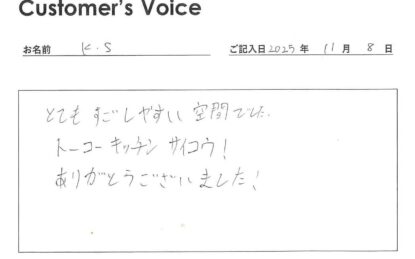 Customer's Voice
お名前 K.S ご記入日2025年 11月 8日
とても すごしやすい 空間でした。
トーコーキッチン サイコウ!
ありがとうございました!